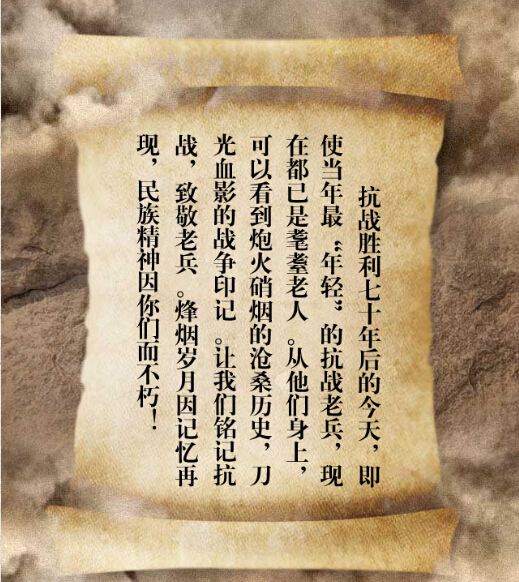 抗战胜利七十年后的今天，即
使当年最“年轻”的抗战老兵，现
在都已是耄耋老人。从他们身上，
可以看到炮火硝烟的沧桑历史，刀
光血影的战争印记。让我们铭记抗
战，致敬老兵。烽烟岁月因记忆再
现，民族精神因你们而不朽！